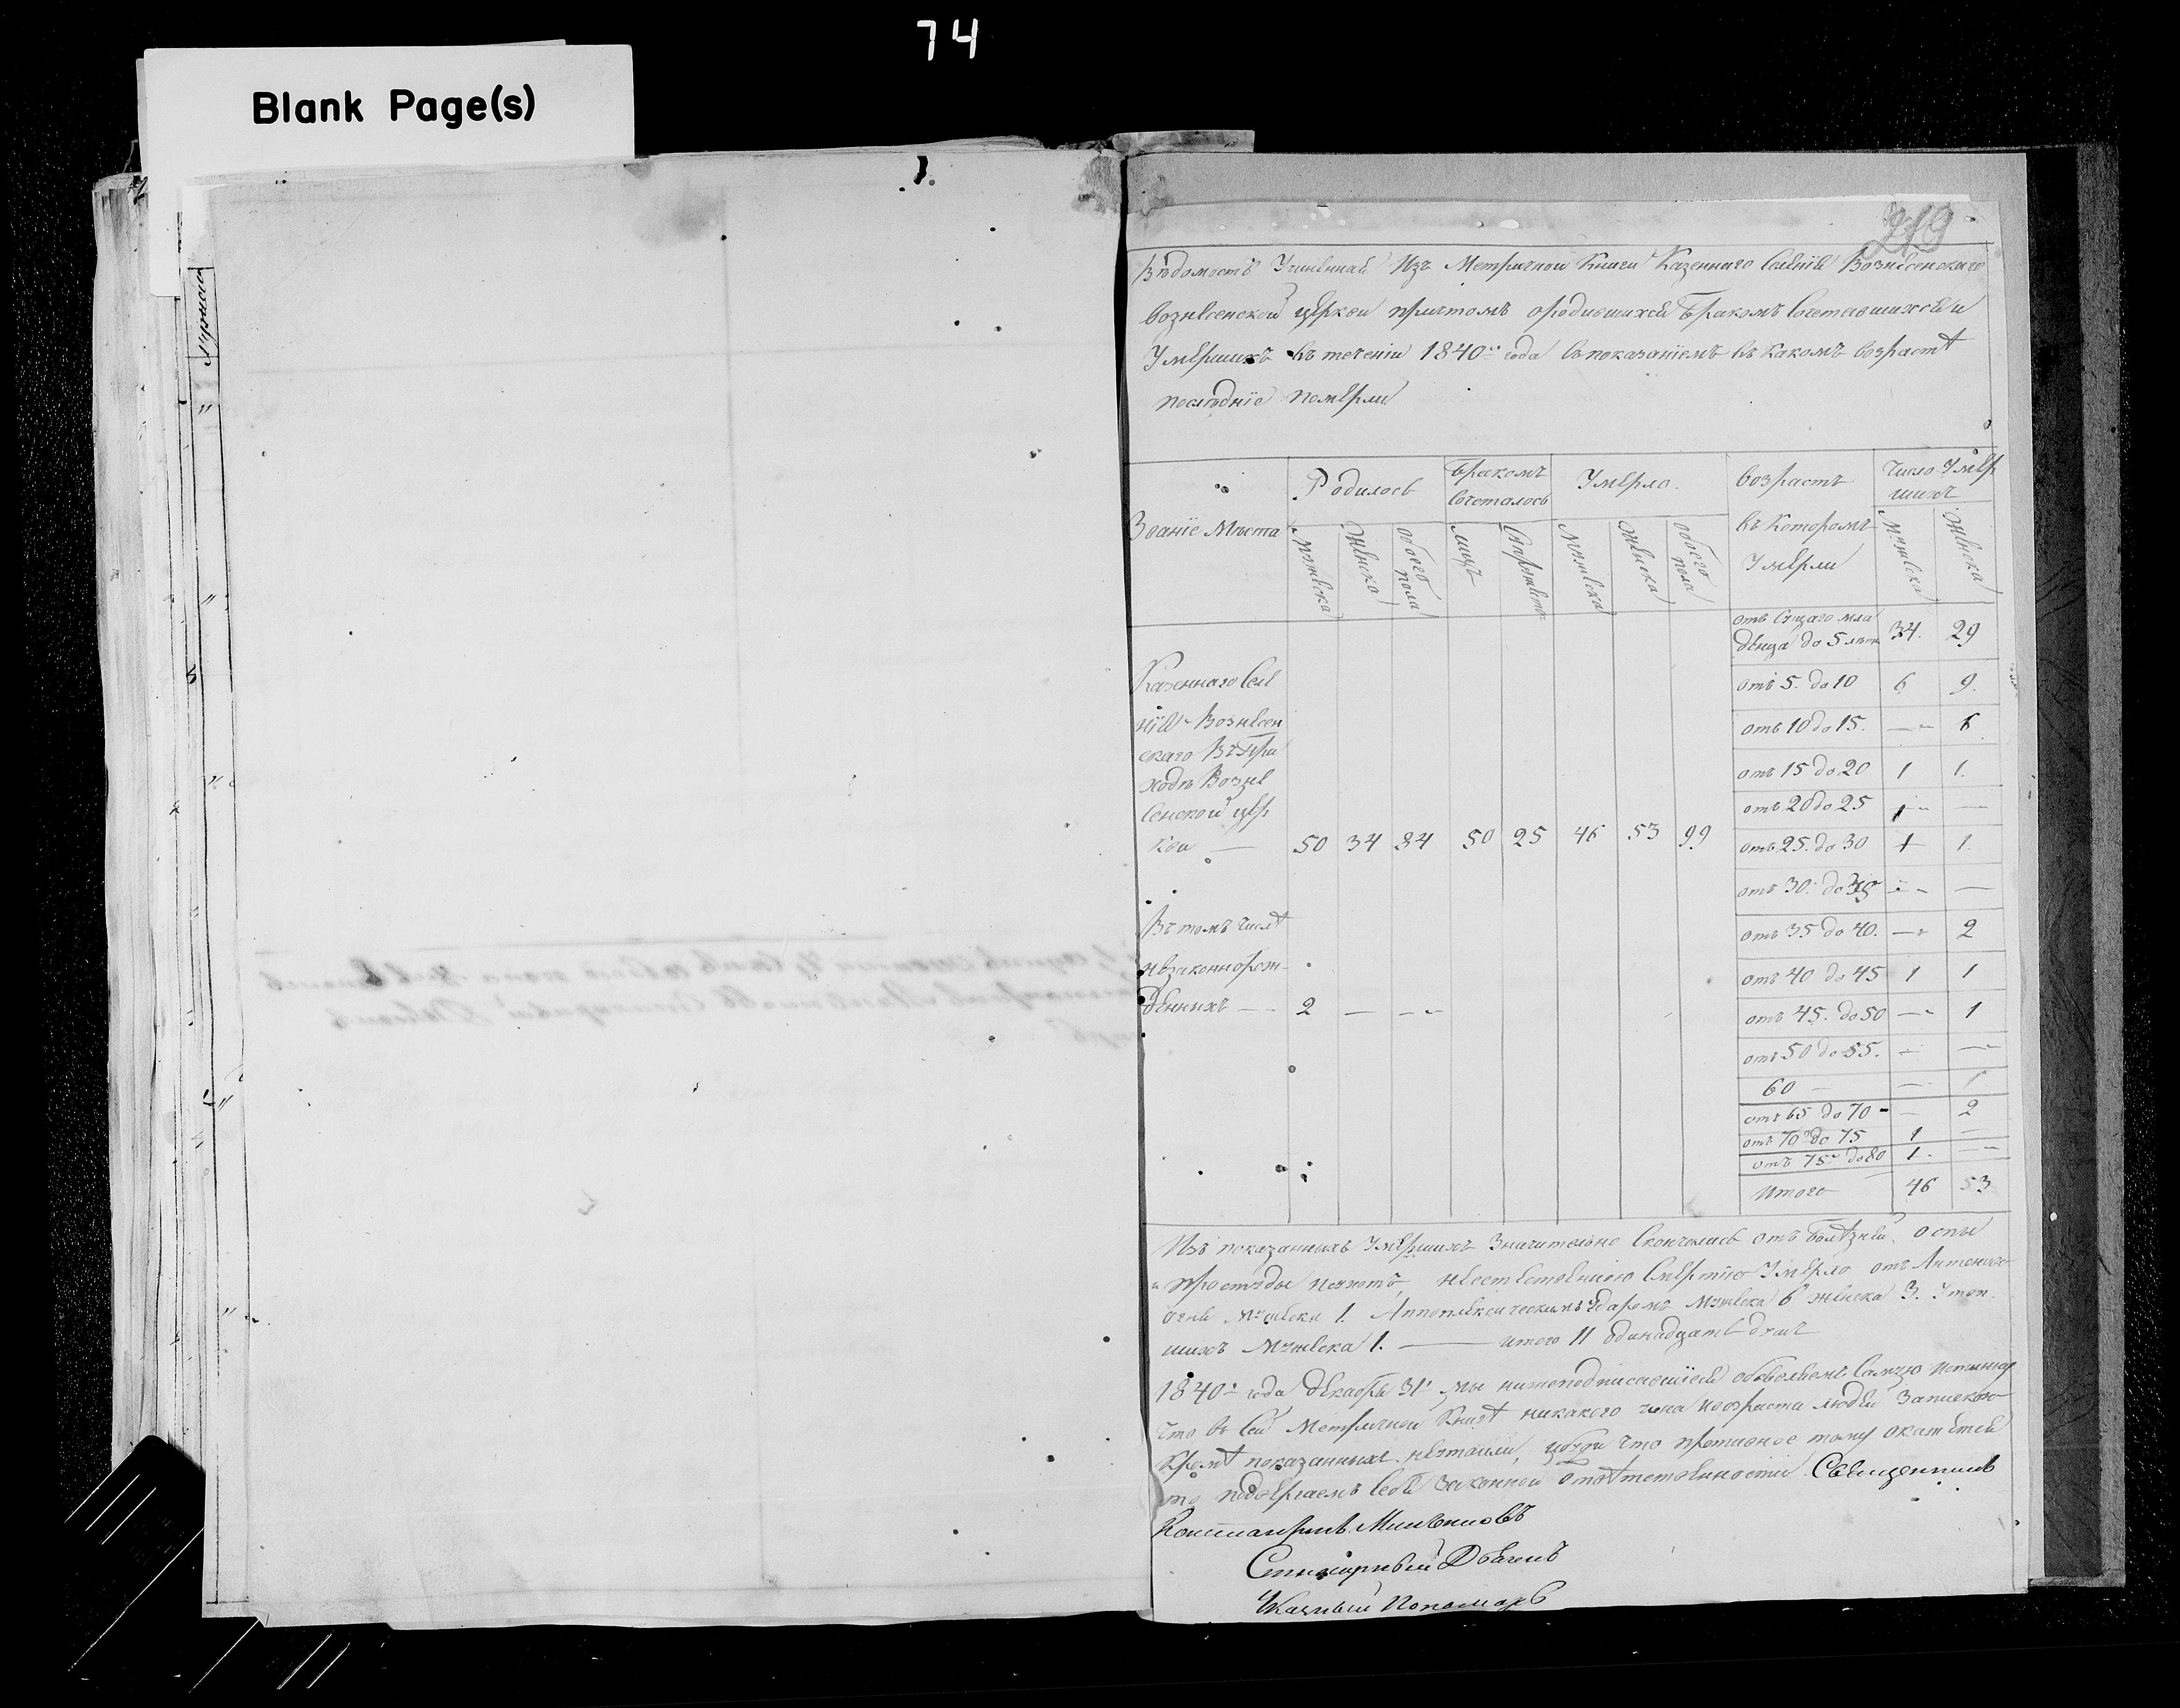 74
Blank Page(s)
219
Вѣдомость Учиненная Изъ Метричной Книги Казеннаго Селенія Вознесенскаго
Вознесенской церкви причтомъ ородившихся Бракомъ Сочетавшихся и
Умершихъ въ теченіи 1840го года съ показаніемъ въ какомъ возрастѣ
послѣдніе померли
Званіе Мѣста
Родилось
Бракомъ сочеталось
Умерло.
возрастъ въ Которомъ Умерли
Число Умер
шихъ
Мужеска Женска обоего пола лицъ Супружествъ Мужеска Женска обоего пола Мужеска Женска
отъ Сущаго мла
денца до 5 лѣтъ 34. 29
отъ 5. до 10 6 9.
отъ 10 до 15. — 6
отъ 15 до 20 1 1.
отъ 20 до 25 — —
отъ 25. до 30 1 1.
отъ 30. до 35 — —
отъ 35 до 40. — 2
отъ 40 до 45 1 1
отъ 45. до 50 — 1
отъ 50 до 55. — —
60 — — 1
отъ 65 до 70 — 2
отъ 70 до 75 1 —
отъ 75 до 80 1. —
Итого 46 53
Казеннаго Селе
нія Вознесен
скаго Въ При
ходѣ Возне
сенской цер
кви — 50 34 84 50 25 46 53 99
Въ томъ числѣ
незаконнорож
денныхъ — 2 — —
Изъ показанныхъ Умершихъ Значительно Скончались отъ болѣзней. оспы
и простуды неестественною Смертію Умерло отъ Антонова
огня Мужеска 1. Аппоплексическимъ Ударомъ Мужеска 6 женска 3. Утоп
шихъ Мужеска 1. — итого 11 одинадцать душъ
1840го года Декабря 31. мы нижеподписавшіеся объявляемъ Самую истинну
что въ сей Метричной Книгѣ никакого чина ивозраста людей Запискою
Кромѣ показанныхъ неутаили, что противное тому окажется
то подвергаемъ себя Законной Отвѣтственности. Священникъ
Дьячекъ
Указный Пономарь